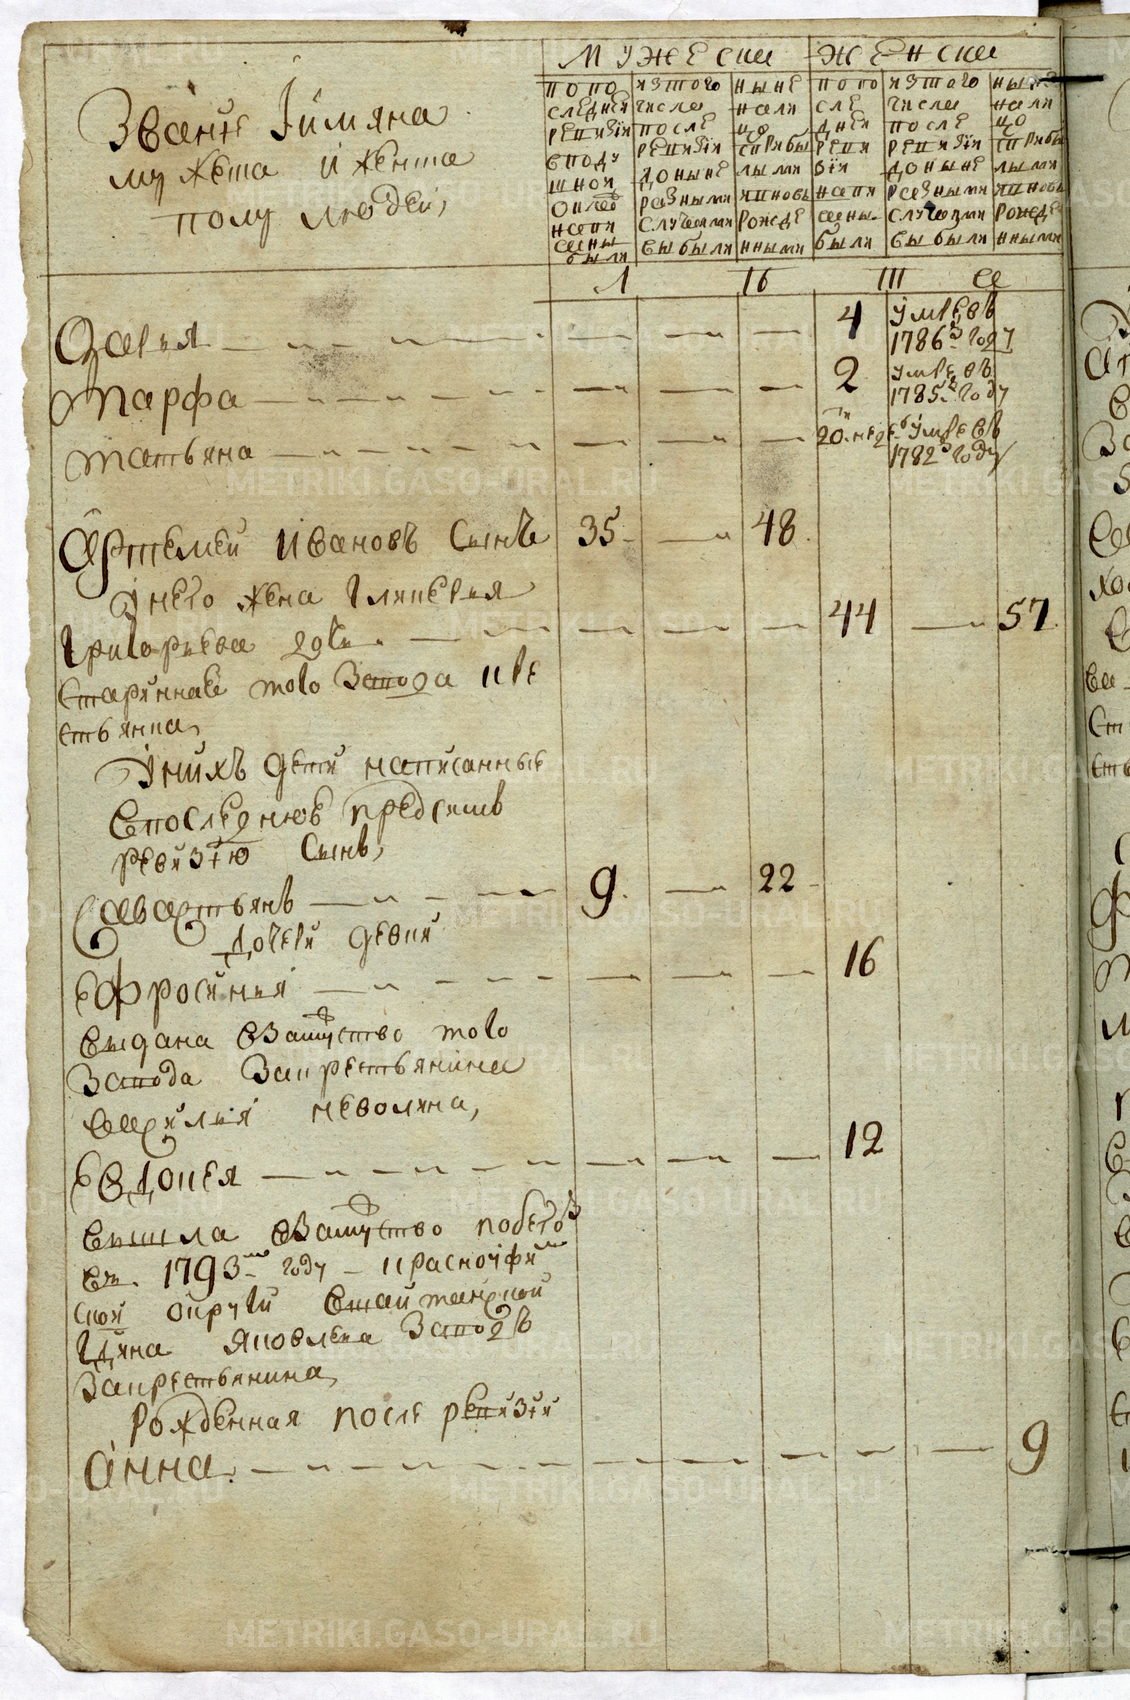 Званiе Iимяна
мужеска и женска
полу людей,
МУЖЕСКИ
ЖЕНСКИ
попо следней ревизiи
изтого числа после ревизiи доныне разными случаями выбыли
ныне нали цо сприбы лыми рожде нными
попо сле дней реви зiи напи саны были
изтого числа после ревизiи доныне разными случаями выбыли
ныне нали цо сприбы лыми рожде нными
Дарья 4 умре въ 1786м году
Марфа 2 умре въ 1785м году
Татьяна 20 нед умре въ 1782м году
Артемей Ивановъ сынъ 35 48
Унего жена Гликерья
Григорьева дочь 44 57
Стариннаго того завода кре
стьянина,
Унихъ дети написанные
впоследнюю предсимъ
ревизiю сынъ,
Савастьянъ 9 22
Дочери девки
Ефросинья 16
Выдана взамужство того
завода закрестьянина
Василья Неволина,
Евдокея 12
Вышла взамужство
въ 1793м году красноуфим
ской округи
Яковлева заводъ
закрестьянина,
Рожденная после ревизiи
Анна 9
METRIKI.GASO-URAL.RU